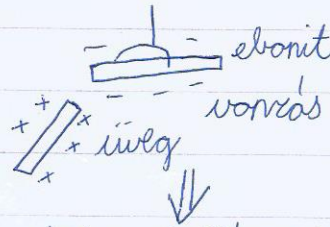 ebonit
vonzás
üveg